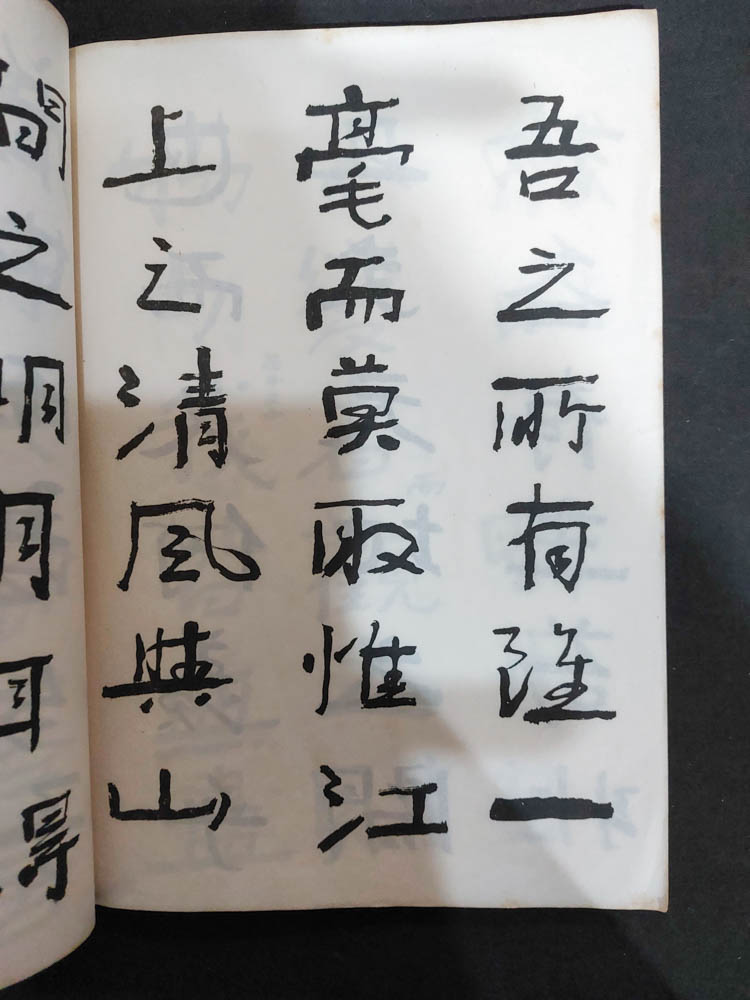 吾之所有雖一
毫而莫取惟江
上之清風與山
間之明月耳得